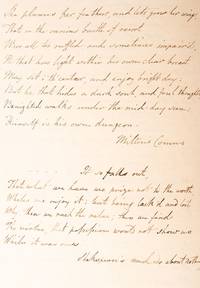 She plumes her feathers, and lets grow her wings
That in the various bustle of resort
Were all to ruffled and sometimes impair'd.
He that has light within his own clear breast
May sit i' th center and enjoy bright day:
But he that hides a dark soul, and foul thoughts
Benighted walks under the mid-day sun;
Himself is his own dungeon.
Miltons Comus
It so falls out,
That what we have we prize not to the worth
Whiles we enjoy it; but being lack'd and lost
Why then we rack the value; then we find
The virtue, that possession would not show us
Whiles it was ours
Shakespear's much ado about nothing